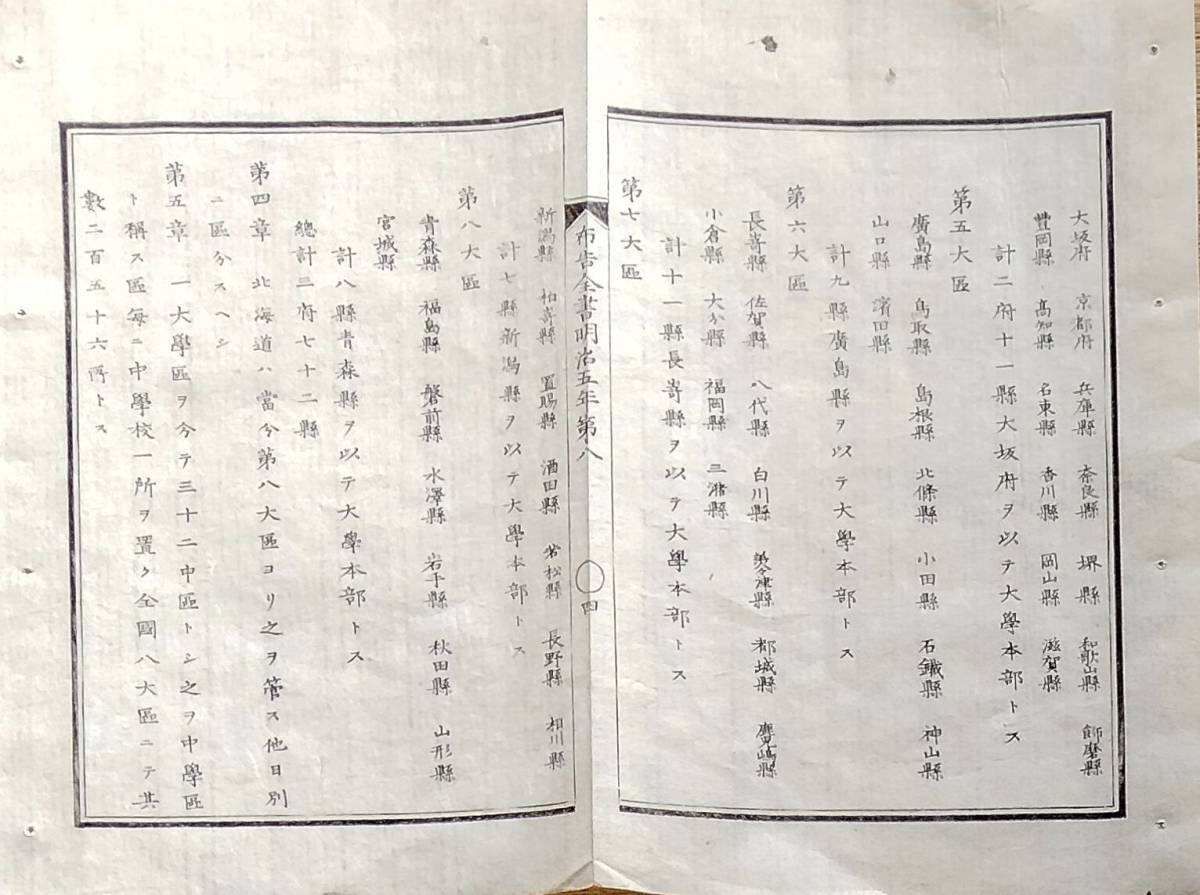 大坂府 京都府 兵庫縣 奈良縣 堺縣 和歌山縣 飾磨縣
豐岡縣 高知縣 名東縣 香川縣 岡山縣 滋賀縣
計二府十一縣大坂府ヲ以テ大學本部トス
第五大區
廣島縣 鳥取縣 島根縣 北條縣 小田縣 石鐵縣 神山縣
山口縣 濱田縣
計九縣廣島縣ヲ以テ大學本部トス
第六大區
長嵜縣 佐賀縣 八代縣 白川縣 美々津縣 都城縣 鹿兒嶋縣
小倉縣 大分縣 福岡縣 三潴縣
計十一縣長嵜縣ヲ以テ大學本部トス
第七大區
布告全書明治五年第八 〇 四
新潟縣 柏嵜縣 置賜縣 酒田縣 若松縣 長野縣 相川縣
計七縣新潟縣ヲ以テ大學本部トス
第八大區
青森縣 福島縣 磐前縣 水澤縣 岩手縣 秋田縣 山形縣
宮城縣
計八縣青森縣ヲ以テ大學本部トス
總計三府七十二縣
第四章 北海道ハ當今第八大區ヨリ之ヲ管ス他日別
ニ區分スヘシ
第五章 一大學區ヲ分テ三十二中區トシ之ヲ中學區
ト稱ス區每ニ中學校一所ヲ置ク全國八大區ニテ其
數二百五十六所トス